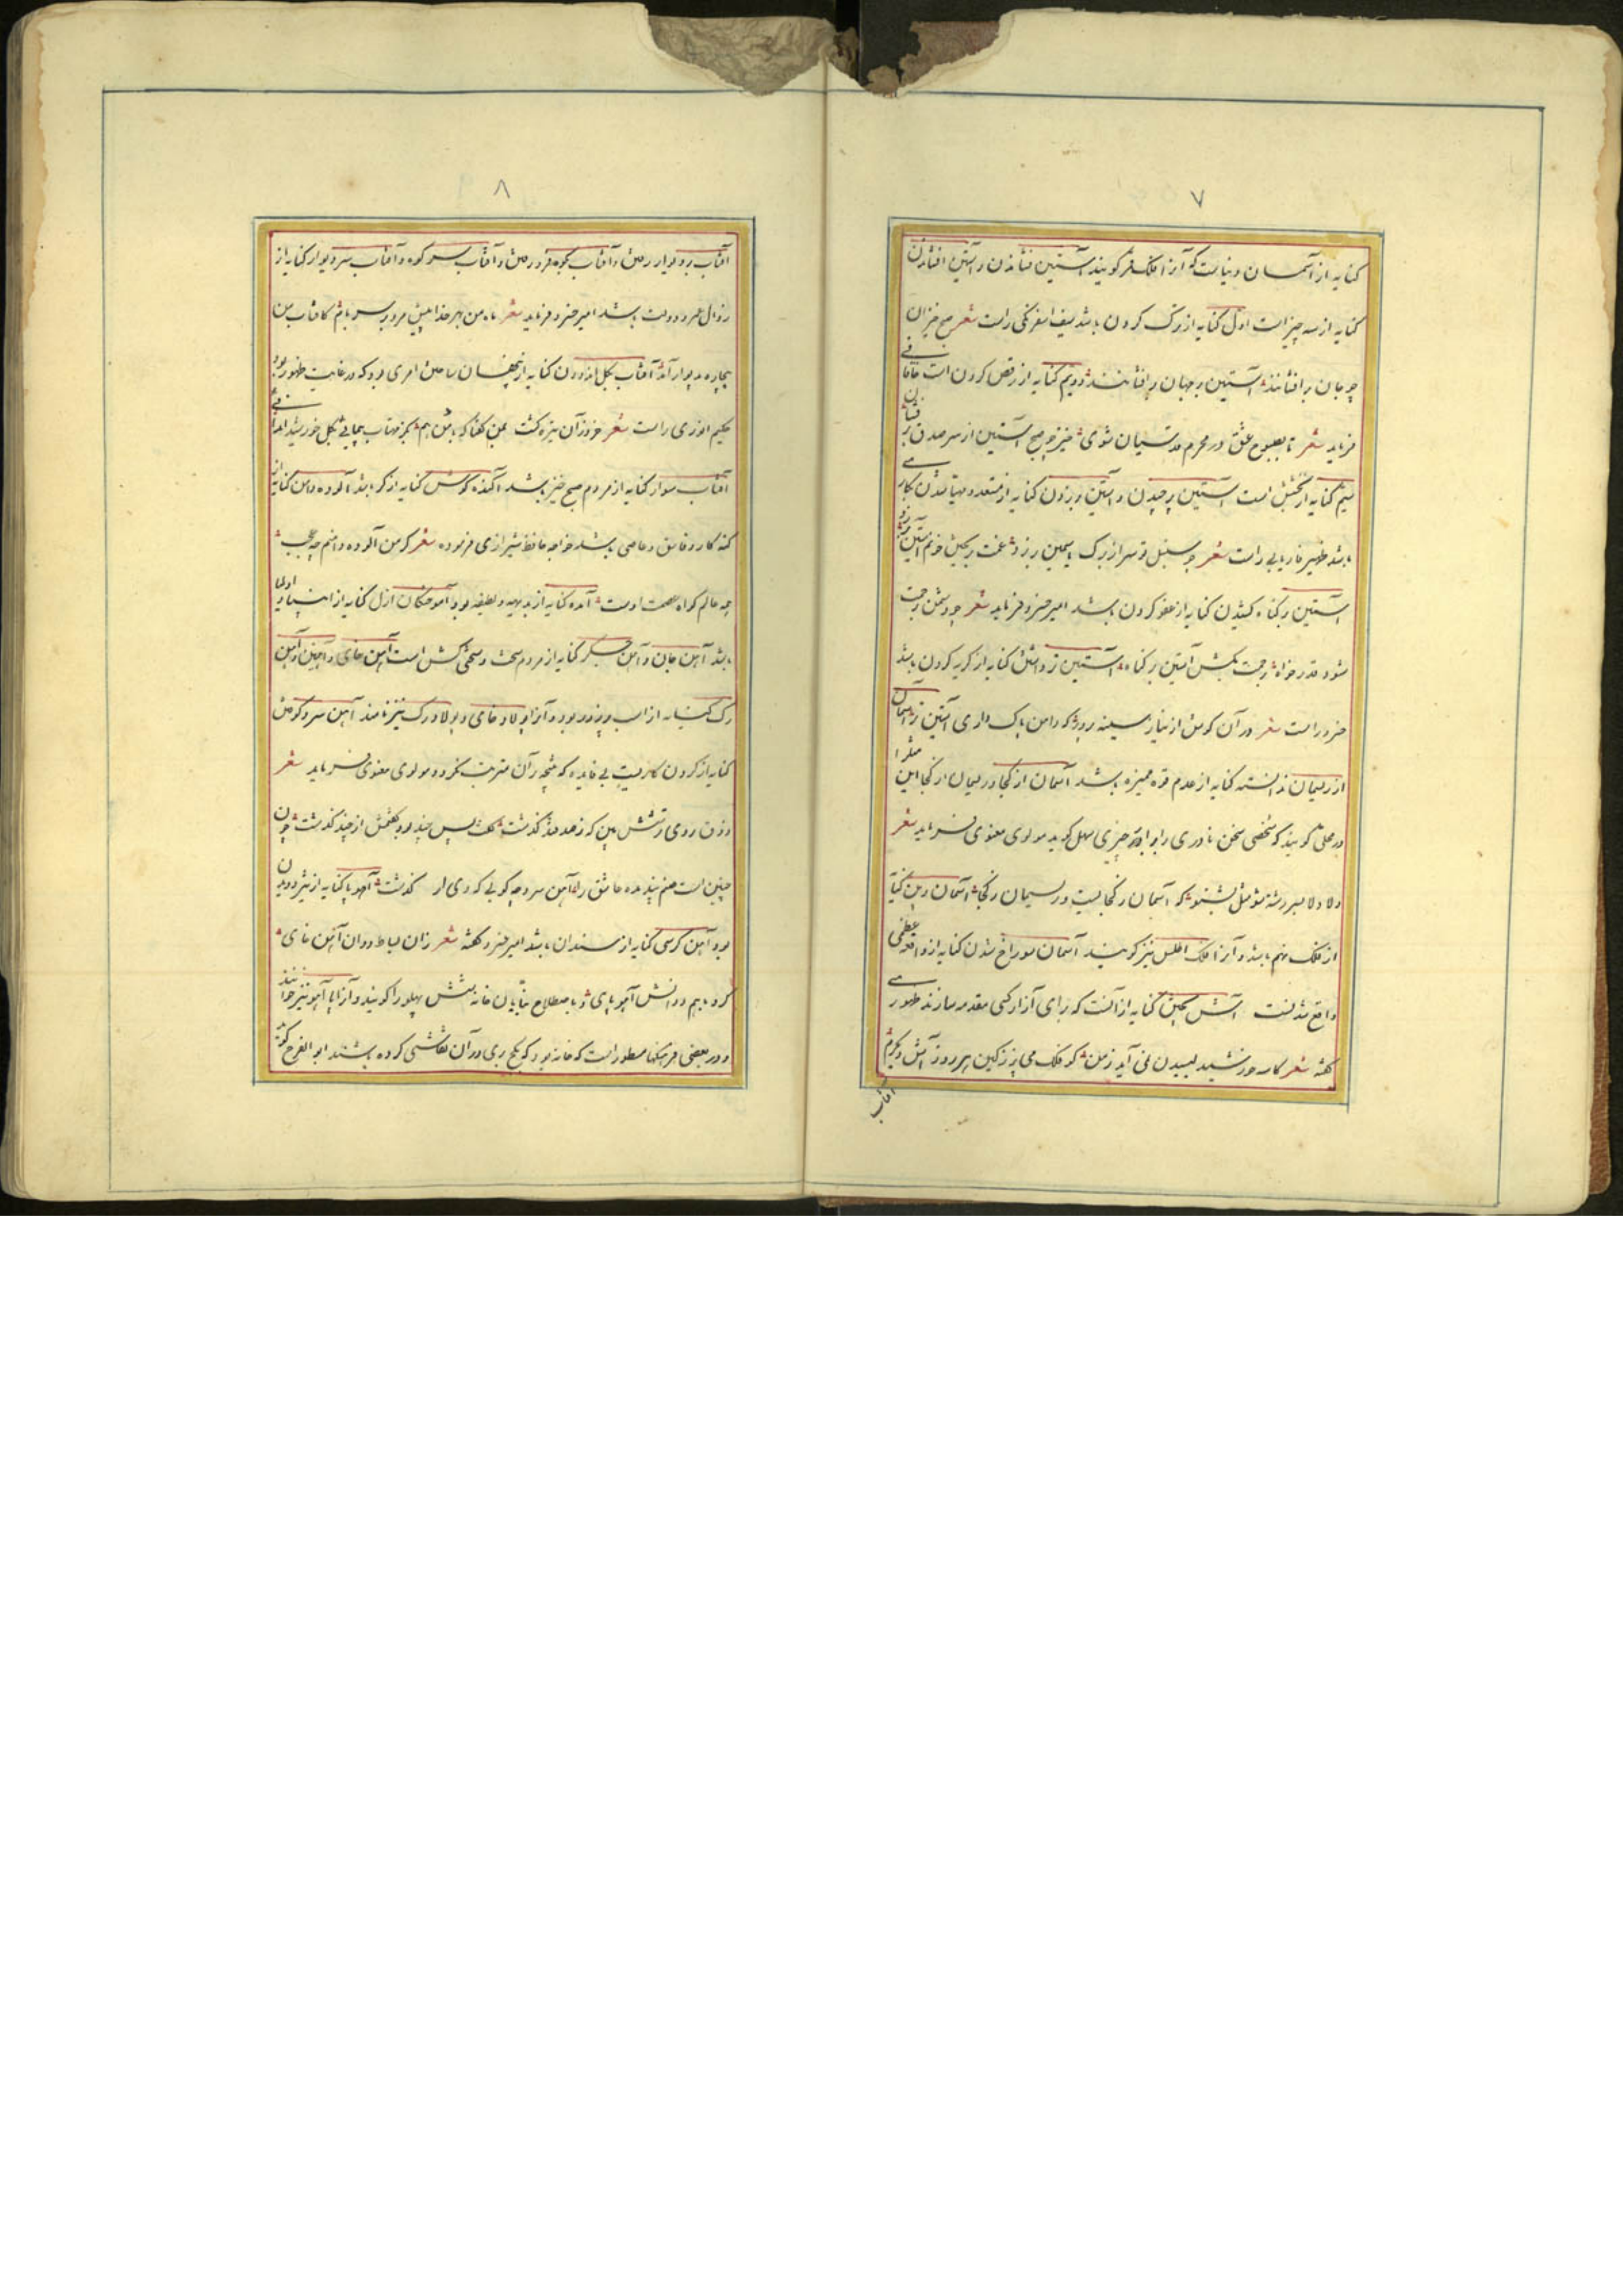 ۷
کنایه از آسمان دنیاست که آنرا فلک قمر گویند آستین فشاندن و آستین افشاندن
کنایه از سه چیز است اول کنایه از ترک کردن باشد سیف اسفرنکی راست شعر صبح خیزان
چو جان برافشانند آستین بر جهان برافشانند دویم کنایه از رقص کردن است خاقانی
فرماید شعر تا بصبوح عشق در محرم قدسیان شوی خیز چو صبح آستین از سر صدق برفشان
سیم کنایه از بخشش است آستین برچیدن و آستین برزدن کنایه از مستعد و مهیا شدن بکاری
باشد ظهیر فاریابی راست شعر چو سنبل تو سر از برگ یاسمین برزد غمت بریختن خونم آستین برزد
آستین بر گناه کشیدن کنایه از عفو کردن باشد امیر خسرو فرماید شعر چو دشمن رحمت
شود قدر خواه برحمت بکش آستین بر گناه آستین تر داشتن کنایه از گریه کردن باشد
خسرو راست شعر در آن کوش از نیاز سینه پرور که دامن پاک داری آستین تر آسمان
از ریسمان ندانستن کنایه از عدم قوه ممیزه باشد آسمان از کجا و ریسمان از کجا این مثل را
در محلی گویند که شخصی سخن نادری را برابر چیزی سهل گوید مولوی معنوی فرماید شعر
دلا دلا بسر رشته شو مثل بشنو که آسمان ز کجایست و ریسمان ز کجا آسمان برین کنایه
از فلک نهم باشد و آنرا فلک اطلس نیز گویند آسمان سوراخ شدن کنایه از واقعه عظمی
واقع شدنست آش پختن کنایه از آنست که برای آزار کسی مقدمه سازند ظهوری
گفته شعر کاسه خورشید لیسیدن نمی آید ز من کو فلک می پز ز کین هر روز آش دیگرم
آفتاب
۸
آفتاب بر دیوار رفتن و آفتاب بکوه فرو رفتن و آفتاب بسر کوه و آفتاب سر دیوار کنایه از
زوال عمر و دولت باشد امیر خسرو فرماید شعر ماه من بهر خدا بیش مرو بر سر بام کافتاب من
بیچاره بدیوار آمد آفتاب بگل اندودن کنایه از پنهان ساختن امری بود که در غایت ظهور بود
حکیم انوری راست شعر
آفتاب سوار کنایه از مردم صبح خیز باشد آکنده گوش کنایه از کر باشد آلوده دامن کنایه از
گنه کار و فاسق و عاصی باشد خواجه حافظ شیرازی فرموده شعر گر من آلوده دامنم چه عجب
همه عالم گواه عصمت اوست آمده کنایه از بدیهه و لطیفه بود آموختگان ازل کنایه از انبیا و اولیا
باشد آهن جان و آهن جگر کنایه از مردم سخت و سختی کش است آهن خای و آهنین و آهن
رگ کنایه از اسب پر زور بود و آنرا پولاد خای و پولاد رگ نیز نامند آهن سرد کوفتن
کنایه از کردن کاریست بی فایده که نتیجه بر آن مترتب نگردد مولوی معنوی فرماید شعر
ذوق روی ترشش بین که ز صد قند گذشت گفت بس چند بود گفتمش از چند گذشت چون
چنین است صنم پند مده عاشق را آهن سرد چه کوبی که وی از گذشت آهو پا کنایه از تیز دویدن
بود آهن کرسی کنایه از سندان باشد امیر خسرو گفته شعر زان بساط دوان آهن نای
کرد باهم دوانش آهو پای و باصطلاح بنایان خانه شش پهلو را گویند و آنرا پا آهو نیز خوانند
و در بعضی فرهنگها مسطور است که خانه بود که بگچ بری در آن نقاشی کرده باشند ابو الفرج گوید